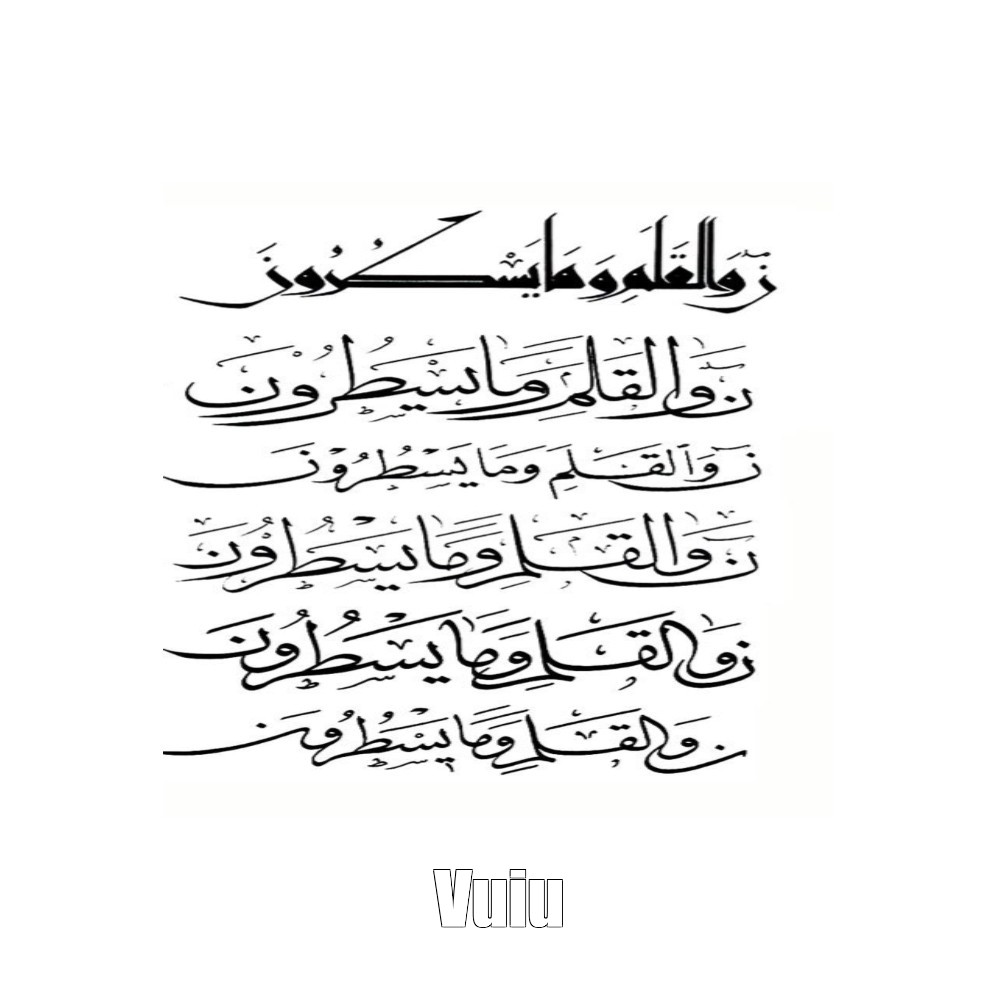 ن وَالقَلَمِ وَمَا يَسْطُرُونَ
نَ وَالقَلَمِ وَمَا يَسْطُرُوْنَ
نَ وَٱلقَلَمِ وَمَا يَسْطُرُوْنَ
نَ وَالقَلَمِ وَمَا يَسْطُرُوُنَ
ن وَالقَلَمِ وَمَا يَسْطُرُونَ
ن وَالقَلَمِ وَمَا يَسْطُرُونَ
Vuiu